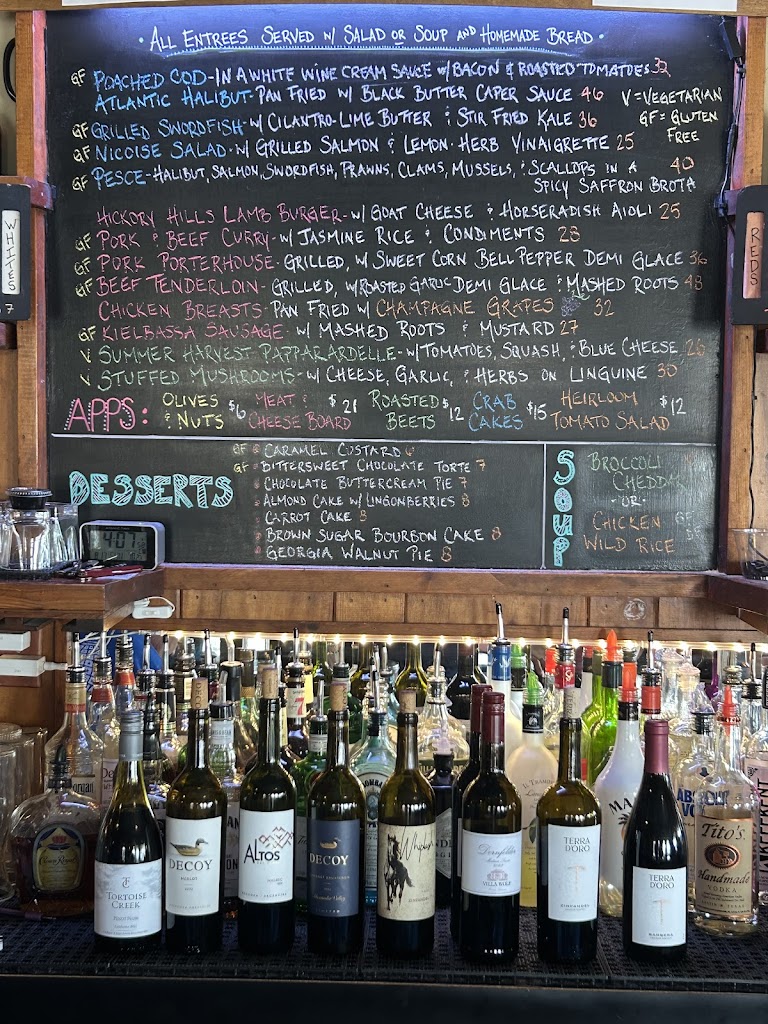 · All Entrees Served w/ Salad or Soup and Homemade Bread ·
GF Poached Cod - in a white wine cream sauce w/ bacon & roasted tomatoes 32
Atlantic Halibut - Pan Fried w/ Black Butter Caper Sauce 46
V = Vegetarian
GF = Gluten
Free
GF Grilled Swordfish - w/ Cilantro-Lime Butter & Stir Fried Kale 36
GF Nicoise Salad - w/ Grilled Salmon & Lemon-Herb Vinaigrette 25
GF Pesce - Halibut, Salmon, Swordfish, Prawns, Clams, Mussels, & Scallops in a 40
Spicy Saffron Brota
Hickory Hills Lamb Burger - w/ Goat Cheese & Horseradish Aioli 25
GF Pork & Beef Curry - w/ Jasmine Rice & Condiments 28
GF Pork Porterhouse - Grilled, w/ Sweet Corn Bell Pepper Demi Glace 36
GF Beef Tenderloin - Grilled, w/ Roasted Garlic Demi Glace & Mashed Roots 48
Chicken Breasts - Pan Fried w/ Champagne Grapes 32
GF Kielbassa Sausage - w/ Mashed Roots & Mustard 27
V Summer Harvest Papparardelle - w/ Tomatoes, Squash, & Blue Cheese 26
V Stuffed Mushrooms - w/ Cheese, Garlic, & Herbs on Linguine 30
Apps:
Olives
& Nuts $6
Meat &
Cheese Board $21
Roasted
Beets $12
Crab
Cakes $15
Heirloom
Tomato Salad $12
Desserts
GF Caramel Custard 6
GF Bittersweet Chocolate Torte 7
Chocolate Buttercream Pie 7
Almond Cake w/ Lingonberries 8
Carrot Cake 8
Brown Sugar Bourbon Cake 8
Georgia Walnut Pie 8
Soup
Broccoli
Cheddar
-or-
Chicken GF
Wild Rice DF
WHITES
REDS
4:07
Crown Royal
Tortoise
Creek
Pinot Noir
DECOY
MERLOT
Altos
DECOY
Whiplash
Dornfelder
VILLA WOLF
TERRA
D'ORO
ZINFANDEL
TERRA
D'ORO
BARBERA
ABSOLUT
VODKA
Tito's
Handmade
VODKA